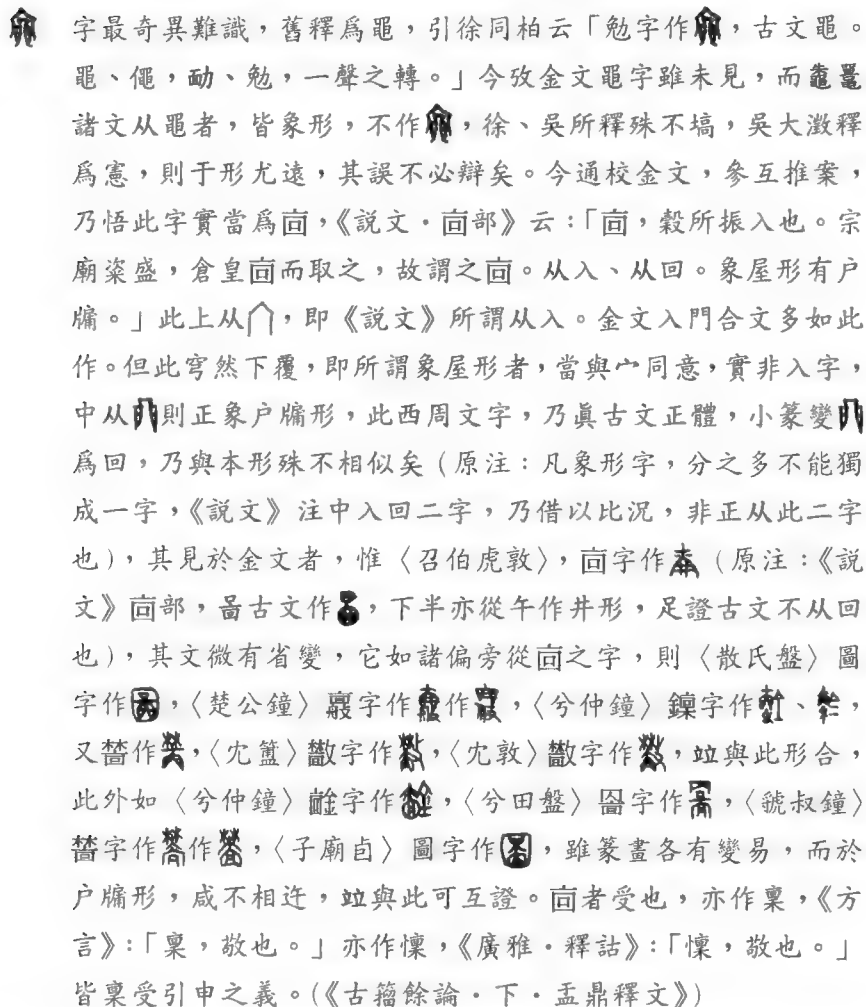 字最奇異難識，舊釋爲黽，引徐同柏云「勉字作，古文黽。
黽、僶，勔、勉，一聲之轉。」今攷金文黽字雖未見，而鼀鼂
諸文从黽者，皆象形，不作，徐、吳所釋殊不塙，吳大澂釋
爲憲，則于形尤遠，其誤不必辯矣。今通校金文，參互推案，
乃悟此字實當爲㐭，《說文‧㐭部》云：「㐭，穀所振入也。宗
廟粢盛，倉皇㐭而取之，故謂之㐭。从入、从回。象屋形有户
牖。」此上从，即《說文》所謂从入。金文入門合文多如此
作。但此穹然下覆，即所謂象屋形者，當與宀同意，實非入字，
中从則正象户牖形，此西周文字，乃眞古文正體，小篆變
爲回，乃與本形殊不相似矣（原注：凡象形字，分之多不能獨
成一字，《說文》注中入回二字，乃借以比況，非正从此二字
也），其見於金文者，惟〈召伯虎敦〉，㐭字作（原注：《說
文》㐭部，啚古文作，下半亦從午作井形，足證古文不从回
也），其文微有省變，它如諸偏旁從㐭之字，則〈散氏盤〉圖
字作，〈楚公鐘〉字作作，〈兮仲鐘〉鐰字作、，
又作，〈冘簠〉字作，〈冘敦〉字作，竝與此形合，
此外如〈兮仲鐘〉字作，〈兮田盤〉字作，〈虢叔鐘〉
字作作，〈子廟卣〉圖字作，雖篆畫各有變易，而於
户牖形，咸不相迕，竝與此可互證。㐭者受也，亦作稟，《方
言》：「稟，敬也。」亦作懍，《廣雅‧釋詁》：「懍，敬也。」
皆稟受引申之義。(《古籀餘論‧下‧盂鼎釋文》)